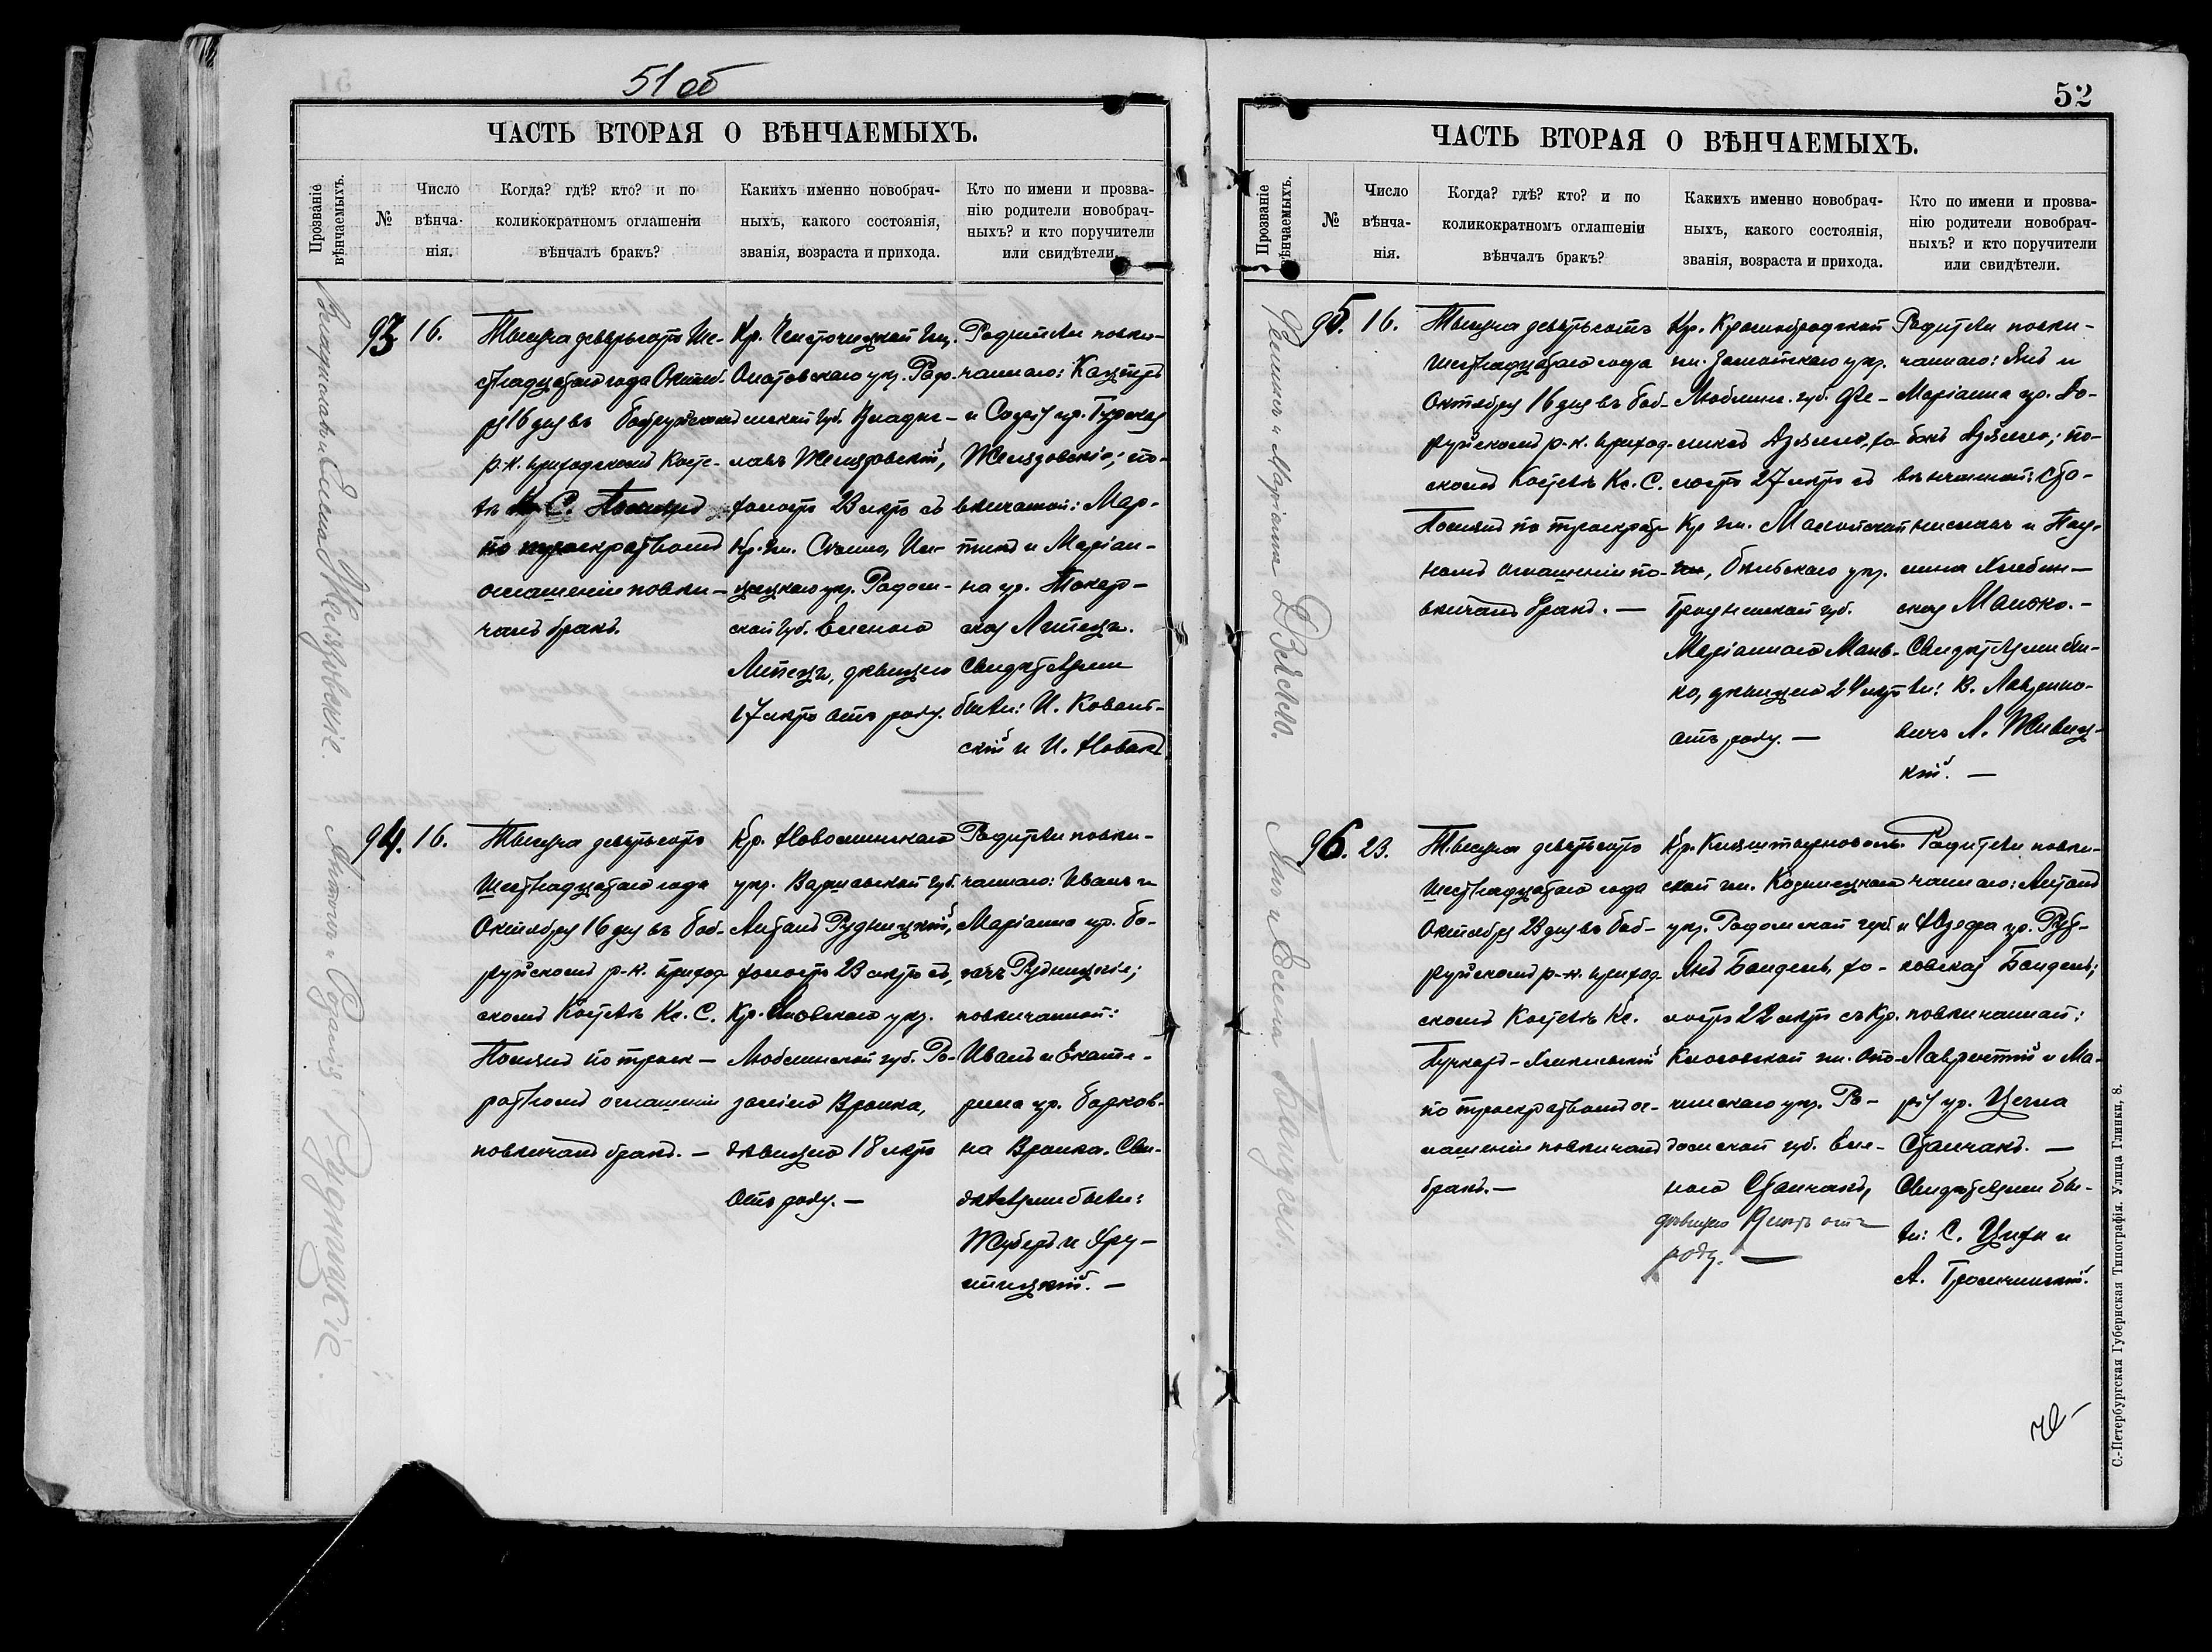 51 об
ЧАСТЬ ВТОРАЯ О ВѢНЧАЕМЫХЪ.
Прозваніе
вѣнчаемыхъ.
№
Число
вѣнча-
нія.
Когда? гдѣ? кто? и по
коликократномъ оглашеніи
вѣнчалъ бракъ?
Какихъ именно новобрач-
ныхъ, какого состоянія,
званія, возраста и прихода.
Кто по имени и прозва-
нію родители новобрач-
ныхъ? и кто поручители
или свидѣтели.
93
16.
Тысяча девятьсотъ Ше-
стнадцатаго года Октяб-
ря 16 дня въ Бобруйскомъ
р.-к. приходскомъ Косте-
лѣ Кс. С.
по троекратномъ
оглашеніи повѣн-
чалъ бракъ.
Кр.
Опатовскаго уѣз. Радо-
мской губ. Владис-
лавъ Желяздовскій,
холостъ 23 лѣтъ съ
Кр. гм.
уѣз. Радом-
ской губ. Еленою
Липецъ, дѣвицею
17 лѣтъ отъ роду.
Родители повѣн-
чаннаго: Кацперъ
и Софія ур. Гурская
Желяздовскіе; по-
вѣнчанной: Мар-
тинъ и Маріан-
на ур. Токар-
ская Липецъ.
Свидѣтелями
были: И. Коваль-
скій и И. Новакъ
94.
16.
Тысяча девятьсотъ
Шестнадцатаго года
Октября 16 дня въ Боб-
руйскомъ р.-к. приход-
скомъ Костелѣ Кс. С.
по троек-
ратномъ оглашеніи
повѣнчалъ бракъ. —
Кр. Новоминскаго
уѣз. Варшавской губ.
Антонъ Рудницкій,
холостъ 23 лѣтъ съ
Кр. уѣз.
Люблинской губ. Ро-
заліею Вронка,
дѣвицею 18 лѣтъ
отъ роду. —
Родители повѣн-
чаннаго: Иванъ и
Маріанна ур. Бо-
Рудницкіе;
повѣнчанной:
Иванъ и Екате-
рина ур. Борков-
на Вронка. Сви-
дѣтелями были:
и
95.
16.
52
ЧАСТЬ ВТОРАЯ О ВѢНЧАЕМЫХЪ.
Прозваніе
вѣнчаемыхъ.
№
Число
вѣнча-
нія.
Когда? гдѣ? кто? и по
коликократномъ оглашеніи
вѣнчалъ бракъ?
Какихъ именно новобрач-
ныхъ, какого состоянія,
званія, возраста и прихода.
Кто по имени и прозва-
нію родители новобрач-
ныхъ? и кто поручители
или свидѣтели.
Тысяча девятьсотъ
шестнадцатаго года
Октября 16 дня въ Боб-
руйскомъ р.-к. приход-
скомъ Костелѣ Кс. С.
по троекрат-
номъ оглашеніи по-
вѣнчалъ бракъ. —
Кр. Краснобродской
гм. Замостскаго уѣз.
Люблинс. губ. Фе-
ликсъ Дзяло, хо-
лостъ 27 лѣтъ съ
Кр. гм.
Бѣльскаго уѣз.
Гродненской губ.
Маріанною Мань-
ко, дѣвицею 24 лѣтъ
отъ роду. —
Родители повѣн-
чаннаго: Янъ и
Маріанна ур.
Дзяло; по-
вѣнчанной: Ста-
ниславъ и Пау-
лина
ская Манько. —
Свидѣтелями бы-
ли: В. Лаврино-
вичъ Л. Живиц-
кій. —
96.
23.
Тысяча девятьсотъ
Шестнадцатаго года
Октября 23 дня въ Боб-
руйскомъ р.-к. приход-
скомъ Костелѣ Кс.
по троекратномъ ог-
лашеніи повѣнчалъ
бракъ. —
Кр.
ской гм. Козеницкаго
уѣз. Радомской губ.
Янъ Бандель, хо-
лостъ 22 лѣтъ съ Кр.
гм. Опо-
чинскаго уѣз. Ра-
домской губ. Еле-
ною Станчакъ,
дѣвицею отъ
роду. —
Родители повѣн-
чаннаго: Антонъ
и Юзефа ур. Рут-
ковская Бандель;
повѣнчанной:
Лаврентій и Ма-
рія ур. Цегла
Станчакъ. —
Свидѣтелями бы-
ли: С. и
А.
Антонъ и Розалія Рудницкіе.
Феликсъ и Маріанна Дзяло.
Янъ и Елена Бандель.
С.-Петербургская Губернская Типографія. Улица Глинки, 8.